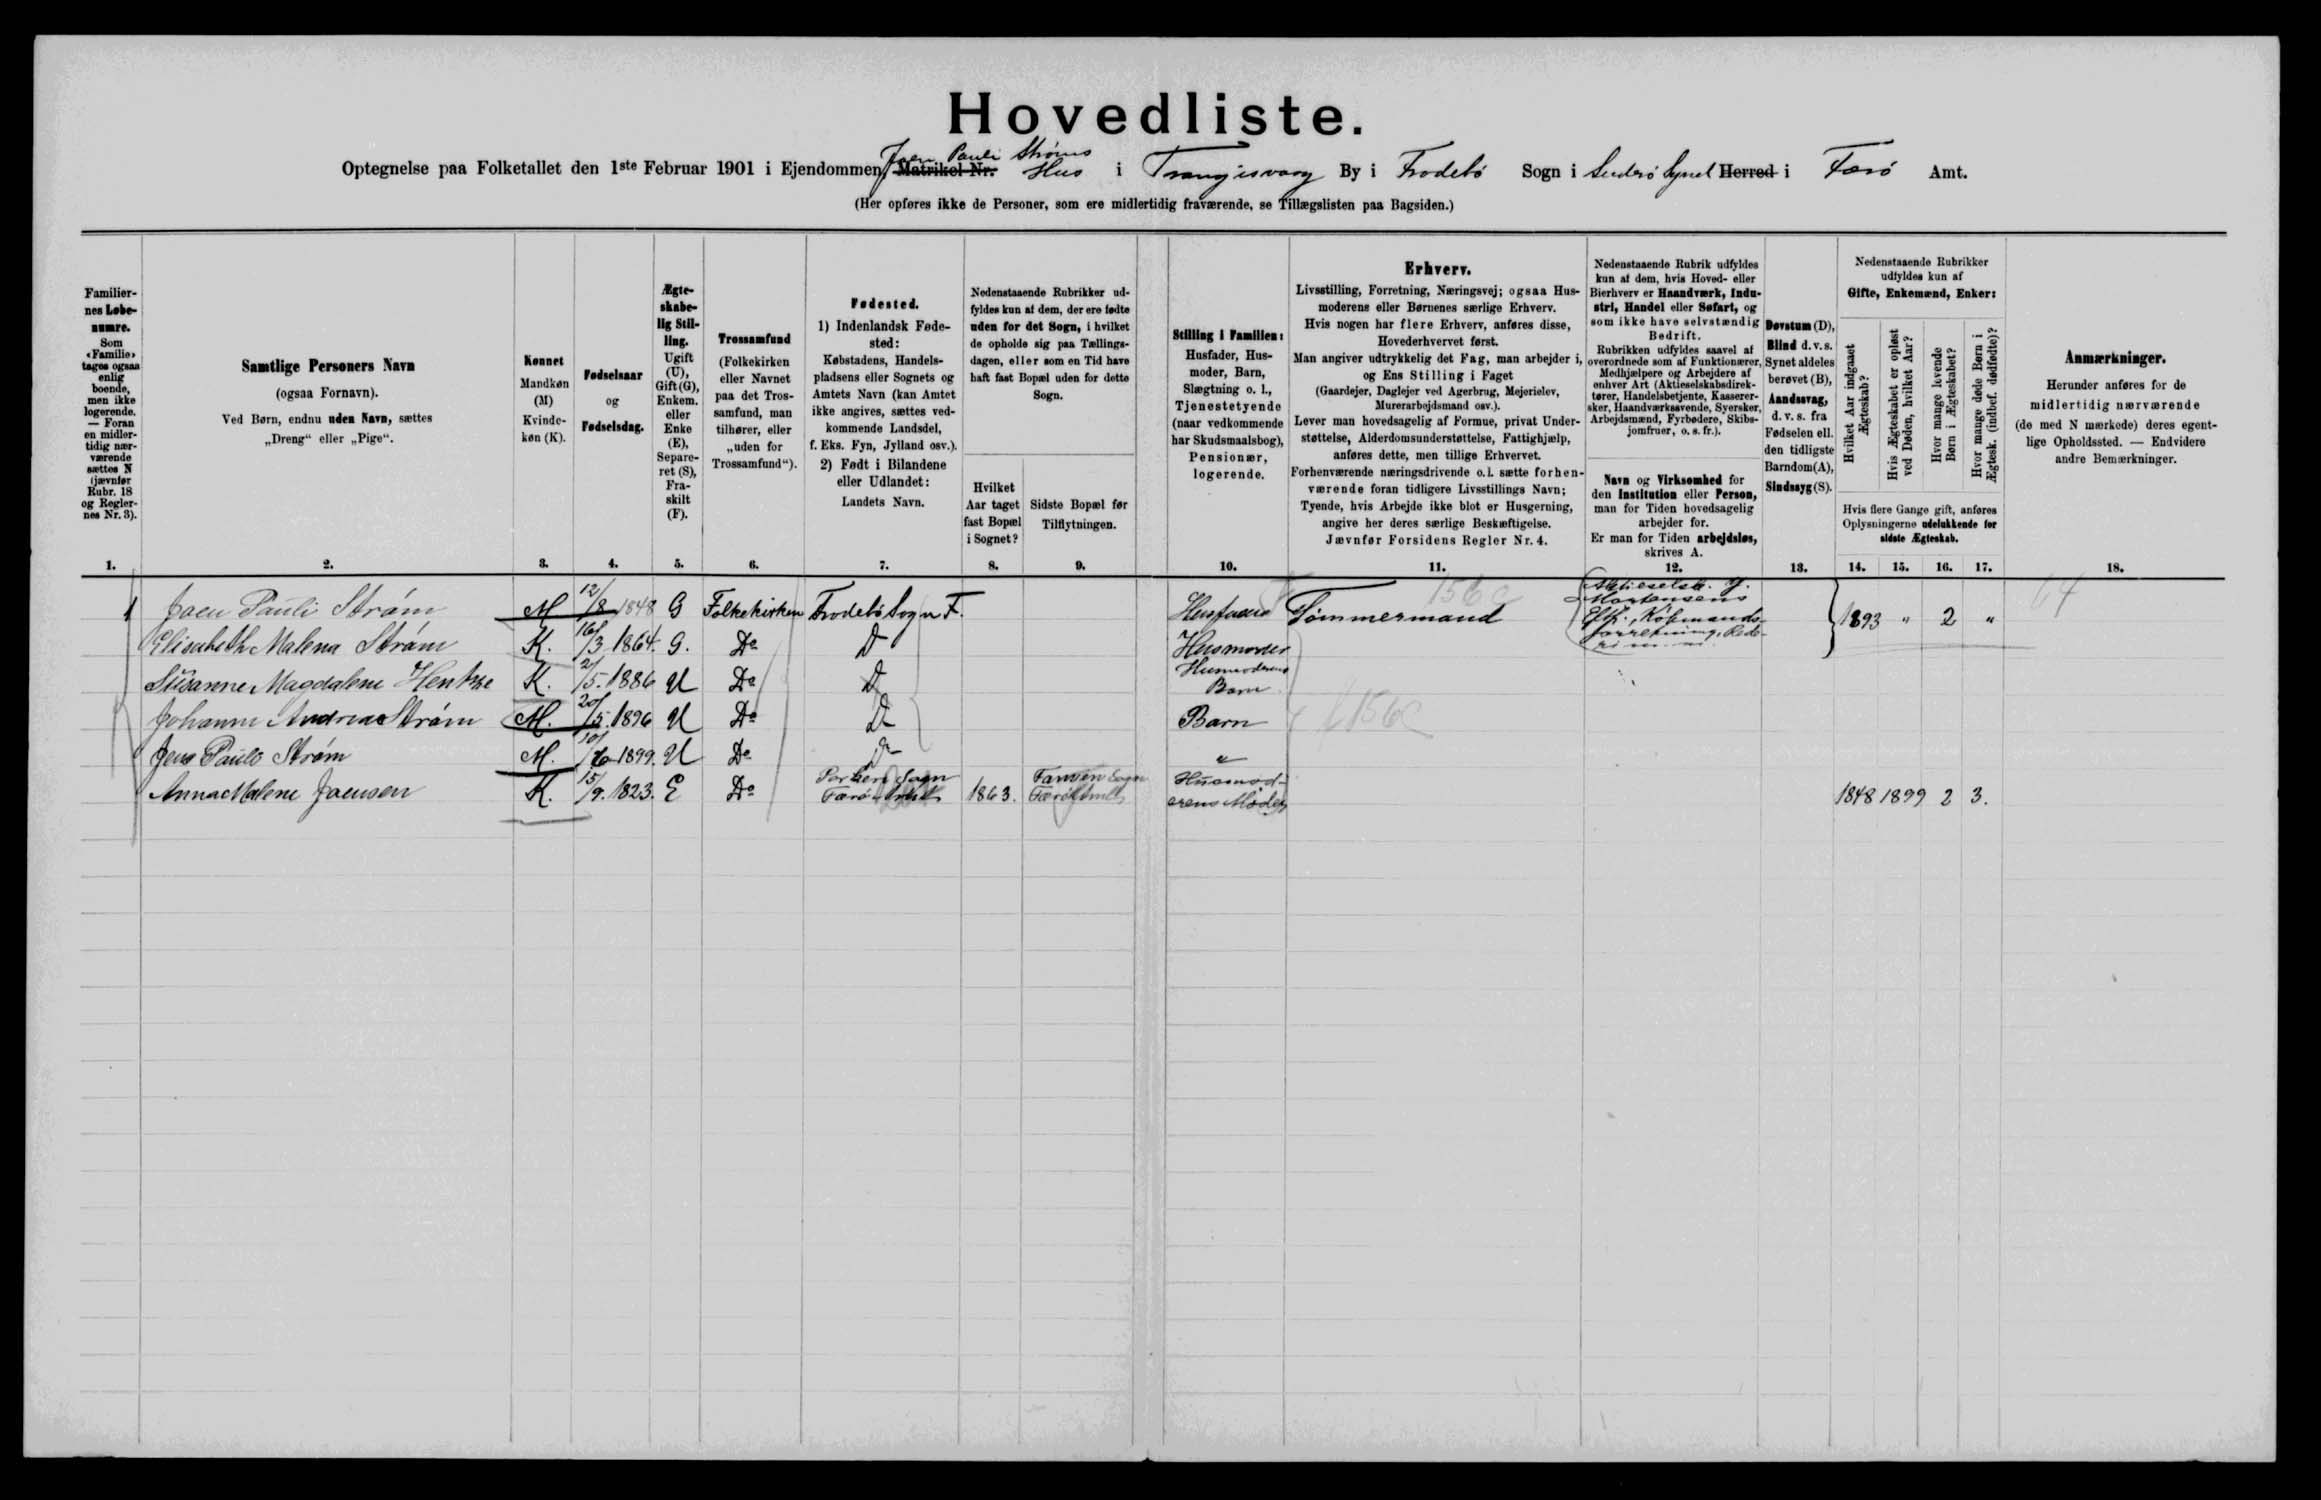 Hovedliste.
Joen Pauli Strøms
Optegnelse paa Folketallet den 1ste Februar 1901 i Ejendommen, Matrikel Nr. Hus i Trangisvaag By i Frodebø Sogn i Suderø Syssel Herred i Færø Amt.
(Her opføres ikke de Personer, som ere midlertidig fraværende, se Tillægslisten paa Bagsiden.)
Familiernes Løbenumre.
Som «Familie» tages ogsaa enlig boende, men ikke logerende. — Foran en midlertidig nærværende sættes N (jævnfør Rubr. 18 og Reglernes Nr. 3).
Samtlige Personers Navn
(ogsaa Fornavn).
Ved Børn, endnu uden Navn, sættes
„Dreng“ eller „Pige“.
Kønnet
Mandkøn (M)
Kvindekøn (K).
Fødselsaar
og
Fødselsdag.
Ægteskabelig Stilling.
Ugift (U), Gift (G), Enkem. eller Enke (E), Separeret (S), Fraskilt (F).
Trossamfund
(Folkekirken eller Navnet paa det Trossamfund, man tilhører, eller „uden for Trossamfund“).
Fødested.
1) Indenlandsk Fødested:
Købstadens, Handelspladsens eller Sognets og Amtets Navn (kan Amtet ikke angives, sættes vedkommende Landsdel, f. Eks. Fyn, Jylland osv.).
2) Født i Bilandene eller Udlandet:
Landets Navn.
Nedenstaaende Rubrikker udfyldes kun af dem, der ere fødte uden for det Sogn, i hvilket de opholde sig paa Tællingsdagen, eller som en Tid have haft fast Bopæl uden for dette Sogn.
Hvilket Aar taget fast Bopæl i Sognet?
Sidste Bopæl før Tilflytningen.
Stilling i Familien:
Husfader, Husmoder, Barn, Slægtning o. l., Tjenestetyende (naar vedkommende har Skudsmaalsbog), Pensionær, logerende.
Erhverv.
Livsstilling, Forretning, Næringsvej; ogsaa Husmoderens eller Børnenes særlige Erhverv.
Hvis nogen har flere Erhverv, anføres disse, Hovederhvervet først.
Man angiver udtrykkelig det Fag, man arbejder i, og Ens Stilling i Faget
(Gaardejer, Daglejer ved Agerbrug, Mejerielev, Murerarbejdsmand osv.).
Lever man hovedsagelig af Formue, privat Understøttelse, Alderdomsunderstøttelse, Fattighjælp, anføres dette, men tillige Erhvervet.
Forhenværende næringsdrivende o. l. sætte forhenværende foran tidligere Livsstillings Navn;
Tyende, hvis Arbejde ikke blot er Husgerning, angive her deres særlige Beskæftigelse.
Jævnfør Forsidens Regler Nr. 4.
Nedenstaaende Rubrik udfyldes kun af dem, hvis Hoved- eller Bierhverv er Haandværk, Industri, Handel eller Søfart, og som ikke have selvstændig Bedrift.
Rubrikken udfyldes saavel af overordnede som af Funktionærer, Medhjælpere og Arbejdere af enhver Art (Aktieselskabsdirektører, Handelsbetjente, Kasserersker, Haandværkssvende, Syersker, Arbejdsmænd, Fyrbødere, Skibsjomfruer, o. s. fr.).
Navn og Virksomhed for den Institution eller Person, man for Tiden hovedsagelig arbejder for.
Er man for Tiden arbejdsløs, skrives A.
Døvstum (D), Blind d. v. s. Synet aldeles berøvet (B), Aandssvag, d. v. s. fra Fødselen ell. den tidligste Barndom (A), Sindssyg (S).
Nedenstaaende Rubrikker udfyldes kun af
Gifte, Enkemænd, Enker:
Hvilket Aar indgaaet Ægteskab?
Hvis Ægteskabet er opløst ved Døden, hvilket Aar?
Hvor mange levende Børn i Ægteskabet?
Hvor mange døde Børn i Ægtesk. (indbef. dødfødte)?
Hvis flere Gange gift, anføres Oplysningerne udelukkende for sidste Ægteskab.
Anmærkninger.
Herunder anføres for de midlertidig nærværende (de med N mærkede) deres egentlige Opholdssted. — Endvidere andre Bemærkninger.
1. 2. 3. 4. 5. 6. 7. 8. 9. 10. 11. 12. 13. 14. 15. 16. 17. 18.
1 Joen Pauli Strøm M 12/8 1848 G Folkekirken Frodebø Sogn F. Husfader Tømmermand 156c Aktieselsk. J. Mortensens Eftf., Købmandsforretning, Rederi 1893 " 2 " 64
Elisabeth Malena Strøm K. 16/3 1864. G. Do Do Husmoder
Susanne Magdalene Hentze K. 2/5. 1886 U Do Do Husmoderens Barn
Johann Andreas Strøm M. 20/5. 1896 U Do Do Barn 156c
Jens Paulo Strøm M. 10/6 1899. U Do Do "
Anna Malene Joensen K. 15/9. 1823. E Do Porkeri Sogn Færø Amt 1863. Famien Sogn Færø Amt Husmoderens Moder 1848 1899 2 3.